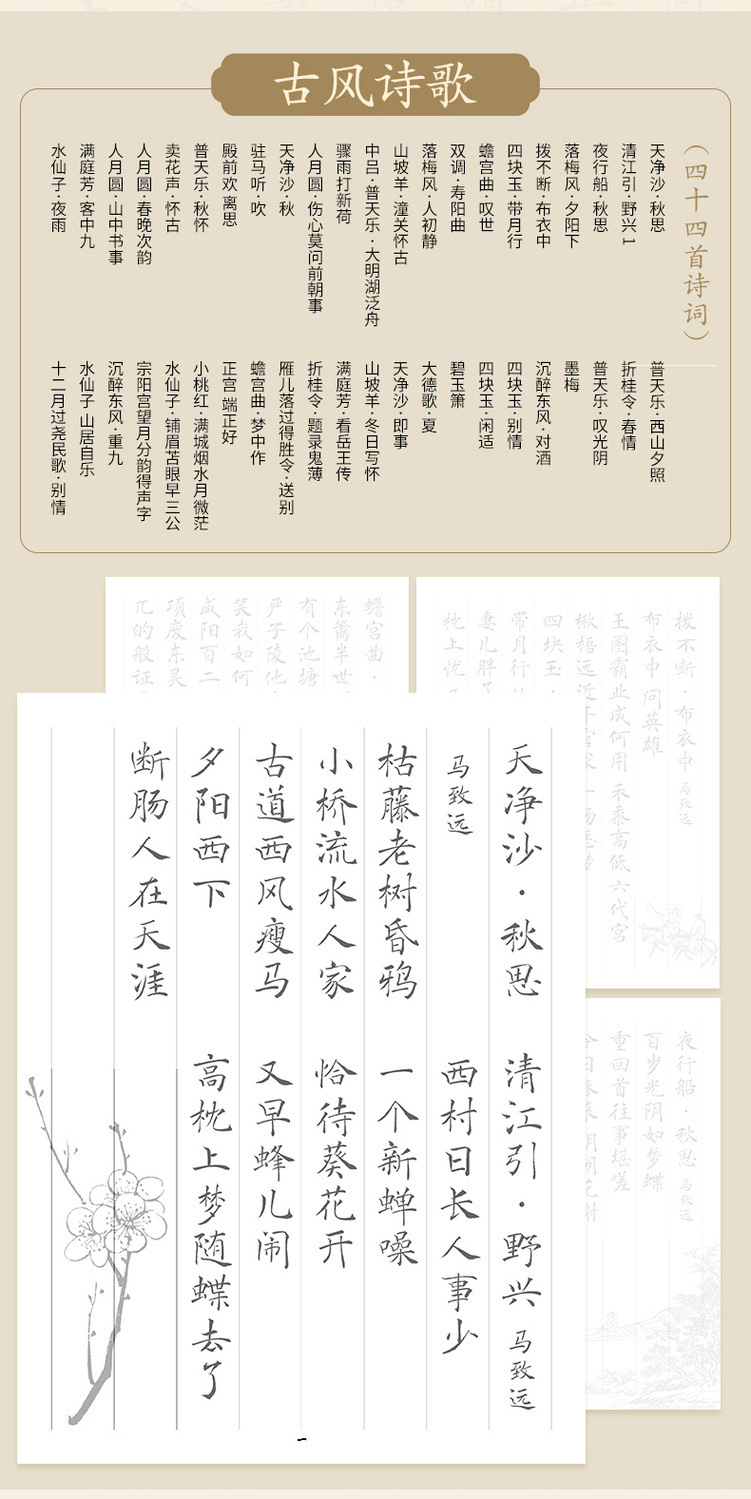 古风诗歌
（四十四首诗词）
天净沙·秋思
清江引·野兴1
夜行船·秋思
落梅风·夕阳下
拨不断·布衣中
四块玉·带月行
蟾宫曲·叹世
双调·寿阳曲
落梅风·人初静
山坡羊·潼关怀古
中吕·普天乐·大明湖泛舟
骤雨打新荷
人月圆·伤心莫问前朝事
天净沙·秋
驻马听·吹
殿前欢 离思
普天乐·秋怀
卖花声·怀古
人月圆·春晚次韵
人月圆·山中书事
满庭芳·客中九
水仙子·夜雨
普天乐·西山夕照
折桂令·春情
普天乐·叹光阴
墨梅
沉醉东风·对酒
四块玉·别情
四块玉·闲适
碧玉箫
大德歌·夏
天净沙·即事
山坡羊·冬日写怀
满庭芳·看岳王传
折桂令·题录鬼薄
雁儿落过得胜令·送别
蟾宫曲·梦中作
正宫 端正好
小桃红·满城烟水月微茫
水仙子·铺眉苫眼早三公
宗阳宫望月分韵得声字
沉醉东风·重九
水仙子 山居自乐
十二月过尧民歌·别情
蟾宫曲·
东篱半世
有个池塘
严子陵他
笑我如何
咸阳百二
项废东吴
兀的般证
拨不断·布衣中 马致远
布衣中 问英雄
王图霸业成何用 禾黍高低六代宫
楸梧远近千官冢 一场恶梦
四块玉·
带月行
妻儿胖
枕上忧
天净沙·秋思
马致远
枯藤老树昏鸦
小桥流水人家
古道西风瘦马
夕阳西下
断肠人在天涯
清江引·野兴 马致远
西村日长人事少
一个新蝉噪
恰待葵花开
又早蜂儿闹
高枕上梦随蝶去了
夜行船·秋思 马致远
百岁光阴如梦蝶
重回首往事堪嗟
今日春来 明朝花谢